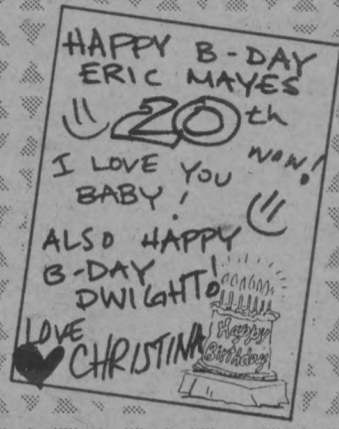 HAPPY B-DAY
ERIC MAYES
20th
NOW!
I LOVE YOU
BABY!
ALSO HAPPY
B-DAY
DWIGHT!
LOVE
CHRISTINA
Happy
Birthday